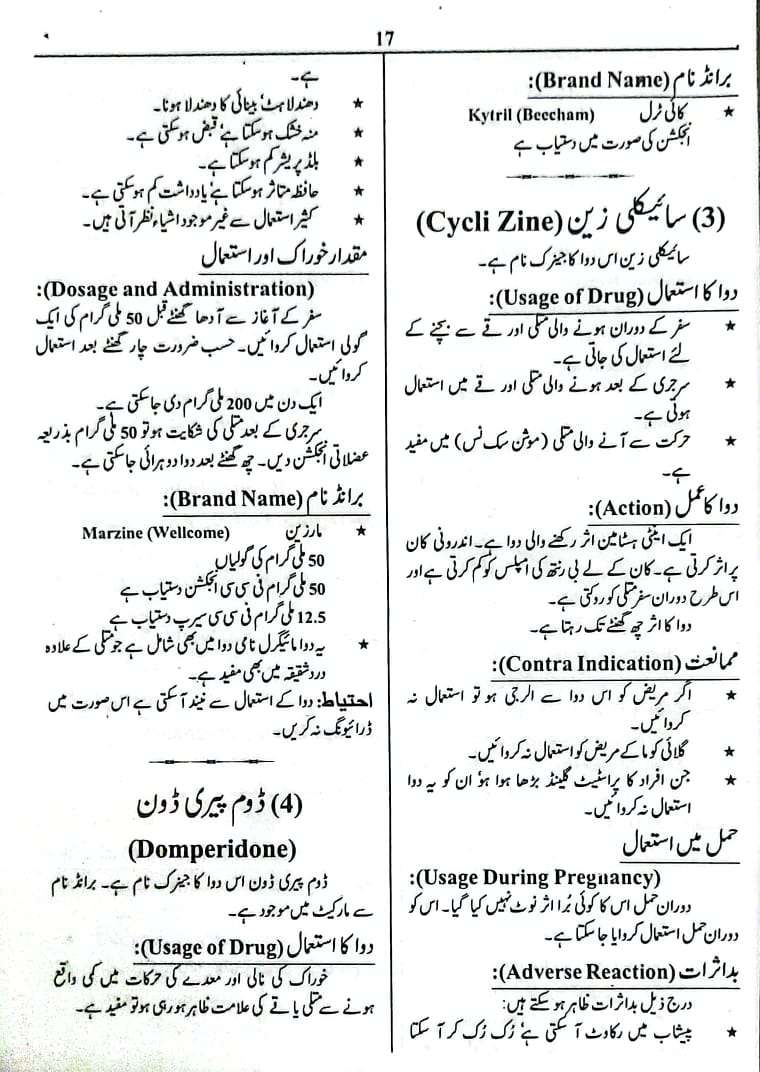 17
برانڈ نام (Brand Name):
★ کائی ٹرل Kytril (Beecham)
انجکشن کی صورت میں دستیاب ہے
(3) سائیکلی زین (Cycli Zine)
سائیکلی زین اس دوا کا جینرک نام ہے۔
دوا کا استعمال (Usage of Drug):
★ سفر کے دوران ہونے والی متلی اور قے سے بچنے کے
لئے استعمال کی جاتی ہے۔
★ سرجری کے بعد ہونے والی متلی اور قے میں استعمال
ہوتی ہے۔
★ حرکت سے آنے والی متلی (موشن سک نس) میں مفید
ہے۔
دوا کا عمل (Action):
ایک اینٹی ہسٹامین اثر رکھنے والی دوا ہے۔ اندرونی کان
پر اثر کرتی ہے۔ کان کے لے بی رنتھ کی امپلس کو کم کرتی ہے اور
اس طرح دوران سفر متلی کو روکتی ہے۔
دوا کا اثر چھ گھنٹے تک رہتا ہے۔
ممانعت (Contra Indication):
★ اگر مریض کو اس دوا سے الرجی ہو تو استعمال نہ
کروائیں۔
★ گلائی کوما کے مریض کو استعمال نہ کروائیں۔
★ جن افراد کا پراسٹیٹ گلینڈ بڑھا ہوا ہو‘ ان کو یہ دوا
استعمال نہ کروائیں۔
حمل میں استعمال
(Usage During Pregnancy):
دوران حمل اس کا کوئی بُرا اثر نوٹ نہیں کیا گیا۔ اس کو
دوران حمل استعمال کروایا جا سکتا ہے۔
بداثرات (Adverse Reaction):
درج ذیل بداثرات ظاہر ہو سکتے ہیں:
★ پیشاب میں رکاوٹ آ سکتی ہے‘ رُک رُک کر آ سکتا
ہے۔
★ دھندلاہٹ‘ بینائی کا دھندلا ہونا۔
★ منہ خشک ہو سکتا ہے‘ قبض ہو سکتی ہے۔
★ بلڈ پریشر کم ہو سکتا ہے۔
★ حافظہ متاثر ہو سکتا ہے‘ یادداشت کم ہو سکتی ہے۔
★ کثیر استعمال سے غیر موجود اشیاء نظر آتی ہیں۔
مقدار خوراک اور استعمال
(Dosage and Administration):
سفر کے آغاز سے آدھا گھنٹے قبل 50 ملی گرام کی ایک
گولی استعمال کروائیں۔ حسب ضرورت چار گھنٹے بعد استعمال
کروائیں۔
ایک دن میں 200 ملی گرام دی جا سکتی ہے۔
سرجری کے بعد متلی کی شکایت ہو تو 50 ملی گرام بذریعہ
عضلاتی انجکشن دیں۔ چھ گھنٹے بعد دوا دوہرائی جا سکتی ہے۔
برانڈ نام (Brand Name):
★ مارزین Marzine (Wellcome)
50 ملی گرام کی گولیاں
50 ملی گرام فی سی سی انجکشن دستیاب ہے
12.5 ملی گرام فی سی سی سیرپ دستیاب ہے
★ یہ دوا مائیگرل نامی دوا میں بھی شامل ہے جو متلی کے علاوہ
درد شقیقہ میں بھی مفید ہے۔
احتیاط: دوا کے استعمال سے نیند آ سکتی ہے اس صورت میں
ڈرائیونگ نہ کریں۔
(4) ڈوم پیری ڈون
(Domperidone)
ڈوم پیری ڈون اس دوا کا جینرک نام ہے۔ برانڈ نام
سے مارکیٹ میں موجود ہے۔
دوا کا استعمال (Usage of Drug):
خوراک کی نالی اور معدے کی حرکات میں کمی واقع
ہونے سے متلی یا قے کی علامت ظاہر ہو رہی ہو تو مفید ہے۔